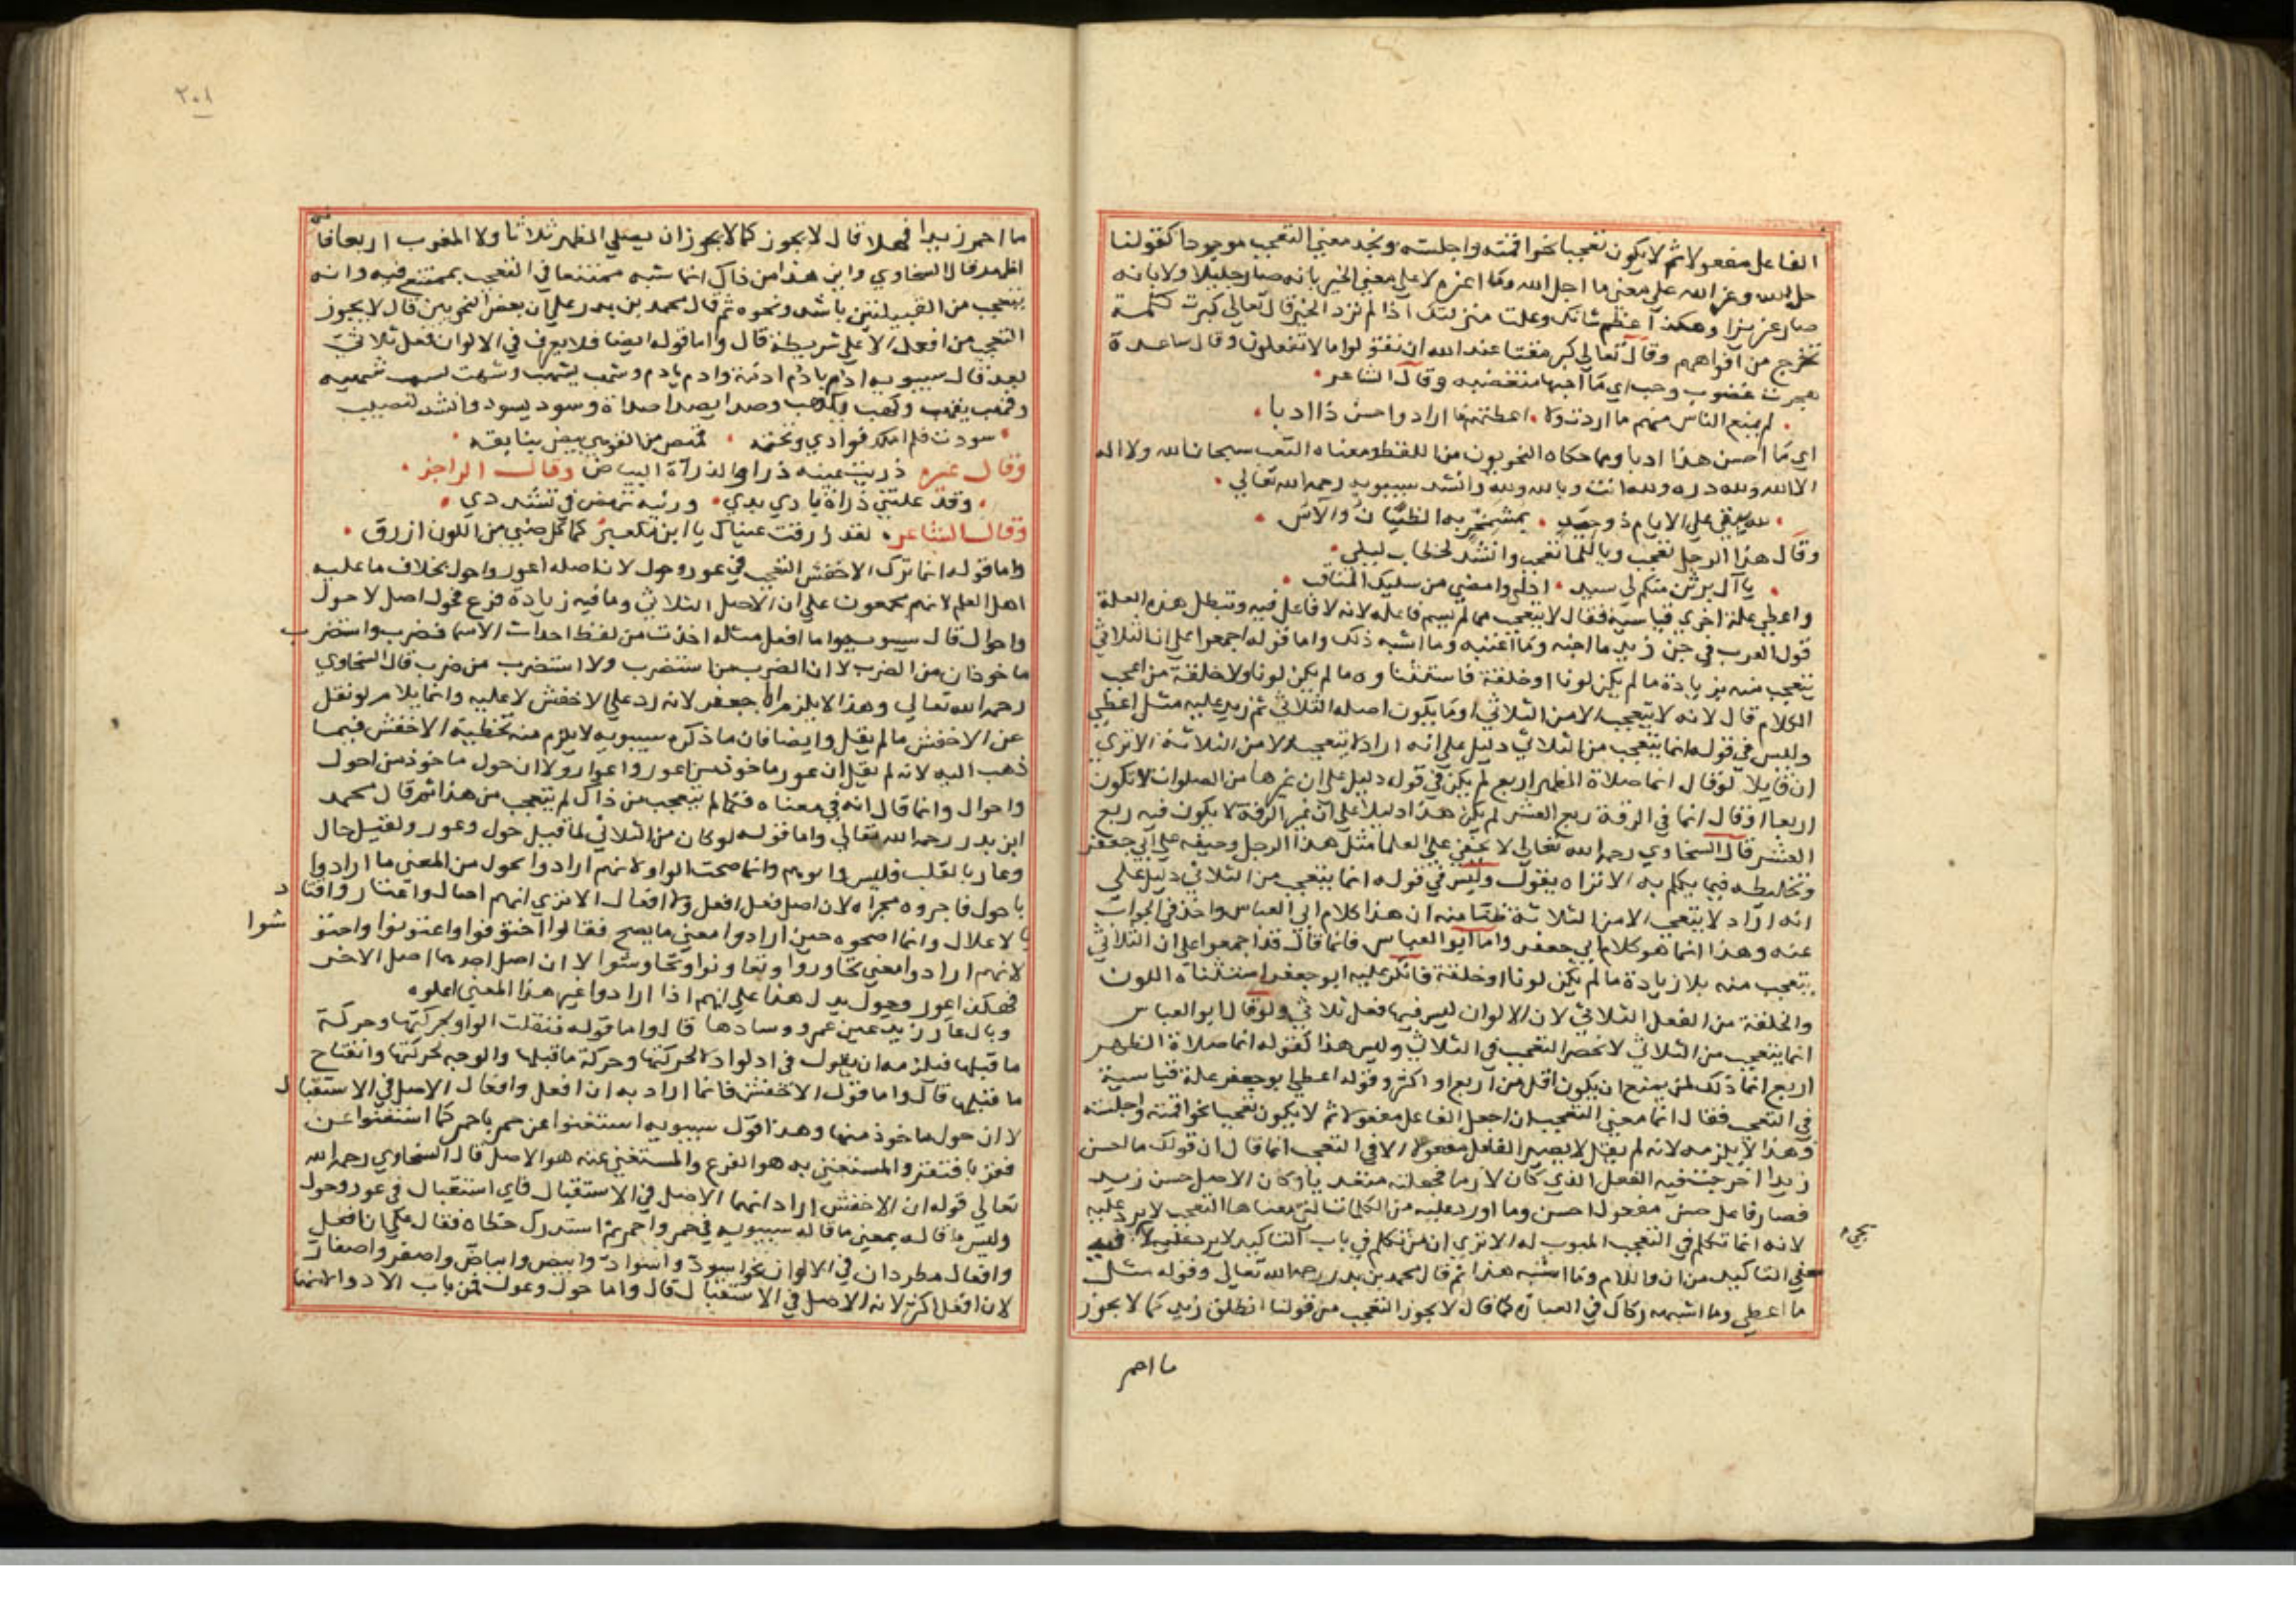 الفاعل مفعولا ثم لا يكون تعجبا نحو اقمته واجلسته ونجد معنى التعجب موجودا كقولنا
جل الله وعز الله على معنى ما اجل الله وما اعزه لا على معنى الخبر بانه صار جليلا ولا بانه
صار عزيزا وهكذا اعظم شانك وعلت منزلتك اذا لم ترد الخبر قال تعالى كبرت كلمة
تخرج من افواههم وقال تعالى كبر مقتا عند الله ان تقولوا ما لا تفعلون وقال ساعدة
هجرت غضوب وحب اي ما احبها متغضبه وقال الشاعر
لم يمنع الناس منهم ما اردت ولا اعطيهم ما ارادوا حسن ذا ادبا
اي ما احسن هذا ادبا ومما حكاه النحويون من اللفظ ومعناه التعجب سبحان الله ولا اله
الا الله ولله دره ولله انت ويا لله ولله وانشد سيبويه رحمه الله تعالى
لله يبقى على الايام ذو حيد بمشمخر به الظيان والاس
وقال هذا الرجل تعجب ويا للما تعجب وانشد
يا آل برثن منكم لي سيد ادل وامضي من سليك المناقب
واعطي علة اخري قياسية فقال لا يتعجب مما لم يسم فاعله لانه لا فاعل فيه وتبطل هذه العلة
قول العرب في جن زيد ما اجنه وما اعتبه وما اشبه ذلك واما قوله اجمعوا على ان الثلاثي
يتعجب منه بزيادة ما لم يكن لونا او خلقة فاستثنا وه ما لم يكن لونا ولا خلقة من اعجب
الكلام قال لانه لا يتعجب الا من الثلاثي او ما يكون اصله الثلاثي ثم زيد عليه مثل اعطي
وليس في قوله انما يتعجب من الثلاثي دليل على انه اراد لا يتعجب الا من الثلاثة الا تري
ان قايلا لو قال انما صلاة الظهر اربع لم يكن في قوله دليل على ان غيرها من الصلوات لا تكون
اربعا او قال انما في الرقة ربع العشر لم يكن هذا دليلا على ان غير الرقة لا يكون فيه ربع
العشر قال السخاوي رحمه الله تعالى لا يخفى على العلما مثل هذا الرجل وحيفه على ابي جعفر
وتخاليطه فيما يكلم به الا تراه يقول وليس في قوله انما يتعجب من الثلاثي دليل على
انه اراد لا يتعجب الا من الثلاثة ظنا منه ان هذا كلام ابي العباس واخذ في الجواب
عنه وهذا انما هو كلام ابي جعفر واما ابو العباس فانما قال قد اجمعوا على ان الثلاثي
يتعجب منه بلا زيادة ما لم يكن لونا او خلقة فانكر عليه ابو جعفر استثناه اللون
والخلقة من الفعل الثلاثي لان الالوان ليس فيها فعل ثلاثي ولو قال ابو العباس
انما يتعجب من الثلاثي لانحصر التعجب في الثلاثي وليس هذا كقوله انما صلاة الظهر
اربع انما ذلك لمن يمنع ان يكون اقل من اربع او اكثر وقوله اعطي ابو جعفر علة قياسية
في التعجب فقال انما معنى التعجب ان اجعل الفاعل مفعولا ثم لا يكون تعجبا نحو اقمته واجلسته
وهذا لا يلزمه لانه لم يقل لا يصير الفاعل مفعولا الا في التعجب انما قال ان قولك ما احسن
زيدا اخرجت فيه الفعل الذي كان لازما فجعلته متعديا وكان الاصل حسن زيد
فصار فاعل حسن مفعول احسن وما اورد عليه من الكلمات التي معناها التعجب لا يرد عليه
لانه انما تكلم في التعجب المبوب له الا تري ان من تكلم في باب التاكيد لا يرد عليه
معنى التاكيد من ان واللام وما اشبه هذا ثم قال محمد بن بدر رحمه الله تعالى وقوله مثل
ما اعطي وما اشبهه ركاك في العبارة كما قال لا يجوز التعجب من قولنا انطلق زيد كما لا يجوز
ما احمر
ما احمر زيدا فهلا قال لا يجوز كما لا يجوز ان يصلي الظهر ثلاثا ولا المغرب اربعا
قال السخاوي واين هذا من ذاك انما شبه ممتنعا في التعجب بممتنع فيه وانه
يتعجب من القبيلتين باشد ونحوه ثم قال محمد بن بدر على ان بعض النحويين قال لا يجوز
التعجب من افعل الا على شريطة قال واما قوله ايضا فلا يعرف في الالوان فعل ثلاثي
لعد قال سيبويه ادم يادم ادمة وادم يادم وشهب يشهب
وقهب يقهب وكهب يكهب وصدا يصدا صداة وسود يسود وانشد لنصيب
سودت فلم املك فوادي وتحته قميص من القوهي بيض بنايقه
وقال غيره ذريت عينه ذرا والذرآة البياض وقال الراجز
وقد علتني ذراة بادي بدي ورثية تنهض في تشددي
وقال الشاعر لقد زرقت عيناك يا ابن مكعبر كما كل ضبي من اللون ازرق
واما قوله انما ترك الاخفش التعجب في عور وحول لان اصله اعور واحول بخلاف ما عليه
اهل العلم لانهم مجمعون على ان الاصل الثلاثي وما فيه زيادة فرع فحول اصل لاحول
واحوال قال سيبويه واما افعل مثله اخذت من لفظ احداث الاسما فضرب واستضرب
ماخوذان من الضرب لا ان الضرب من استضرب ولا استضرب من ضرب قال السخاوي
رحمه الله تعالى وهذا لا يلزم ابا جعفر لانه رد على الاخفش لا عليه وانما يلام لو نقل
عن الاخفش ما لم يقل وايضا فان ما ذكره سيبويه لا يلزم منه تخطية الاخفش فيما
ذهب اليه لانه لم يقل ان عور ماخوذ من اعور واعوار ولا ان حول ماخوذ من احول
واحوال وانما قال انه في معناه فلما لم يتعجب من ذاك لم يتعجب من هذا ثم قال محمد
ابن بدر رحمه الله تعالى واما قوله لو كان من الثلاثي لما قيل حول وعور ولقيل حال
وعار بالقلب فليس وانما صحت الواو لانهم ارادوا بحول من المعنى ما ارادوا
باحول فاجروه مجراه لان اصل فعل افعل وافعال الا تري انهم احال واعتار واقتاد
بالاعلال وانما اصحوه حين ارادوا معنى ما يصح فقالوا واعتونوا واحتو شوا
لانهم ارادوا معنى تجاوروا وتعاونوا وتحاوشوا لا ان اصل احدهما اصل الاخر
فهكذا عور وحول يدل هذا على انهم اذا ارادوا غير هذا المعنى اعلوه
وبال عار زيد عين عمرو وسادها قالوا واما قوله فنقلت الواو بحركتها وحركة
ما قبلها فيلزمه ان يقول في ادلو ادا لحركتها وحركة ما قبلها والوجه لحركتها وانفتاح
ما قبلها قال واما قول الاخفش فانما اراد به ان افعل وافعال الاصل في الاستقبال
لا ان حول ماخوذ منها وهذا قول سيبويه استغنوا عن حمر باحمر كما استغنوا عن
فقر بافتقر والمستغنى به هو الفرع والمستغنى عنه هو الاصل قال السخاوي رحمه الله
تعالى قوله ان الاخفش اراد انهما الاصل في الاستقبال فاي استقبال في عور وحول
وليس ما قاله بمعنى ما قاله سيبويه في حمر واحمر ثم استدرك خطاه فقال على ان افعل
وافعال مطردان في الالوان نحو اسود واسواد وابيض وابياض واصفر واصفار
لان افعل اكثر لانه الاصل في الاستقبال قال واما حول وعول فمن باب الادوا لانها
٢٠١